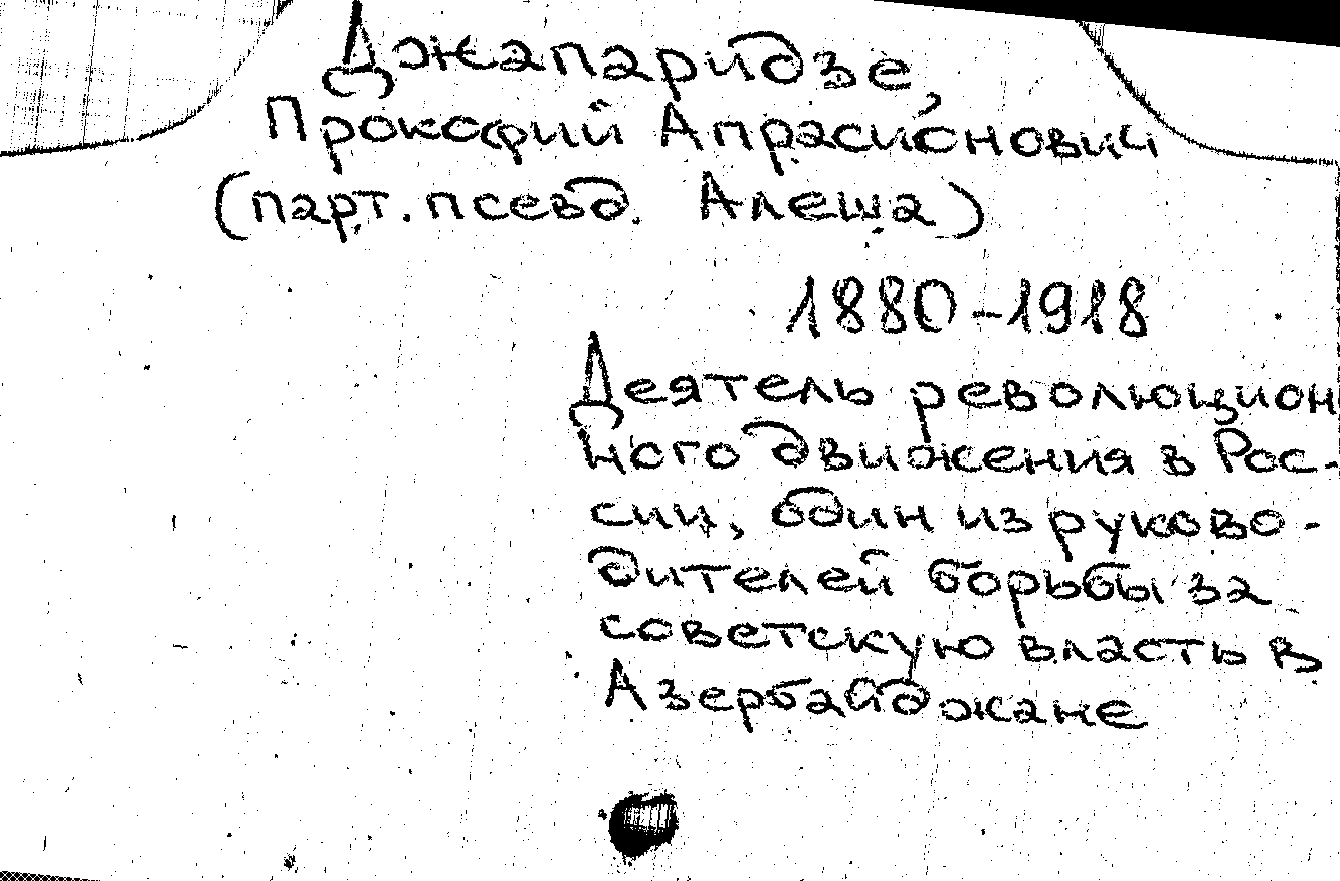 Джапаридзе,
Прокофий Апрасионович
(парт. псевд. Алеша)
1880-1918
Деятель революцион
ного движения в Рос-
сии, один из руково-
дителей борьбы за
советскую власть в
Азербайджане